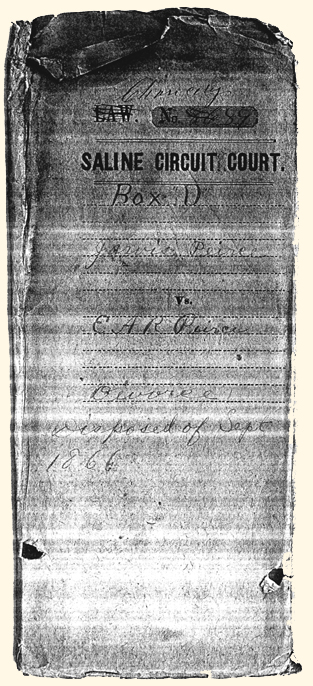 Chancery
LAW. No.
SALINE CIRCUIT COURT.
Box D
Vs.
E A R
Divorce
disposed of Sept
1866